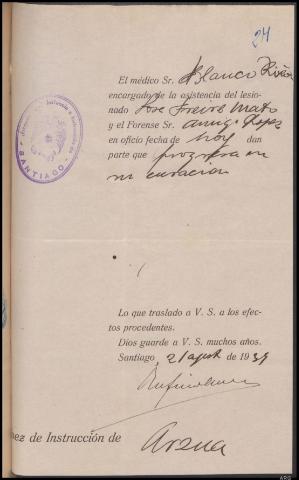 24
El médico Sr. Blanco Rivero
encargado de la asistencia del lesio-
nado Jose Freire Mato
y el Forense Sr. Lopez
en oficio fecha de hoy dan
parte que progresa en
su curacion
SANTIAGO
Lo que traslado a V. S. a los efec-
tos procedentes.
Dios guarde a V. S. muchos años.
Santiago, 21 agost de 1939
ez de Instrucción de Arzua